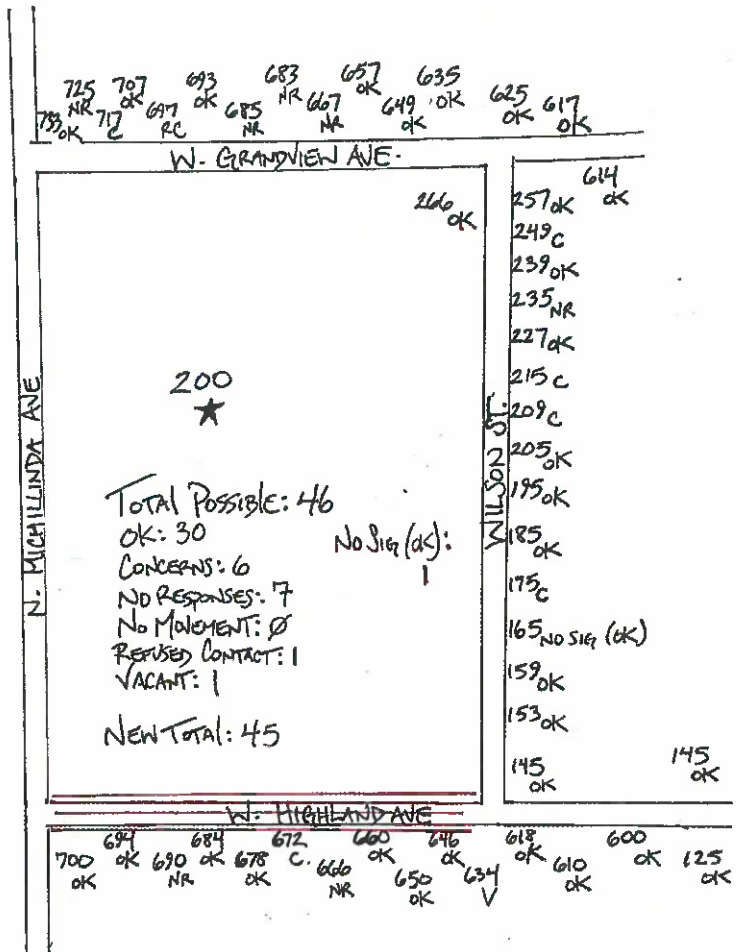 725 NR
707 OK
693 OK
683 NR
657 OK
635 OK
733 OK
717 C
697 RC
685 NR
667 NR
649 OK
625 OK
617 OK
W. GRANDVIEW AVE.
614 OK
266 OK
257 OK
249 C
239 OK
235 NR
227 OK
215 C
209 C
205 OK
195 OK
185 OK
175 C
165 NO SIG (OK)
159 OK
153 OK
145 OK
145 OK
WILSON ST.
N. MICHILLINDA AVE
200
TOTAL POSSIBLE: 46
OK: 30
NO SIG (OK):
1
CONCERNS: 6
NO RESPONSES: 7
NO MOVEMENT: Ø
REFUSED CONTACT: 1
VACANT: 1
NEW TOTAL: 45
W. HIGHLAND AVE
700 OK
694 OK
690 NR
684 OK
678 OK
672 C.
666 NR
660 OK
650 OK
646 OK
634 V
618 OK
610 OK
600 OK
125 OK